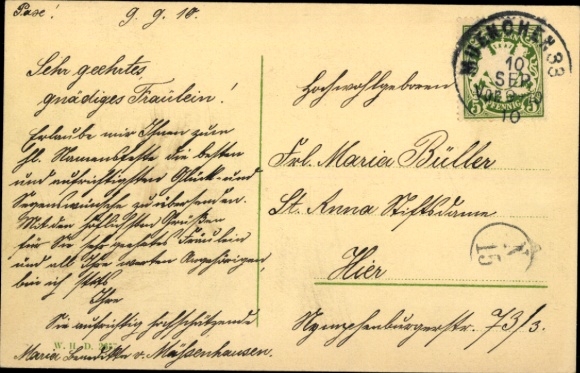 Pasc! 9. 9. 10.
Sehr geehrtes,
gnädiges Fräulein!
Erlaube mir Ihnen zum
hl. Namensfeste die besten
und aufrichtigsten Glück- und
Segenswünsche zu übersenden.
Mit den höflichsten Grüßen
für Sie sehr geehrtes Fräulein
und all Ihre werten Angehörigen,
bin ich stets
Ihre
Sie aufrichtig hochschätzende
Maria Benedikta v. Müssenhausen.
W. H. D.
MUENCHEN 33
10
SEP
VOR
10
5 PFENNIG 5
Hochwohlgeboren
Frl. Maria Büller
St. Anna Stiftsdame
Hier
Nymphenburgerstr. 73/3.
15